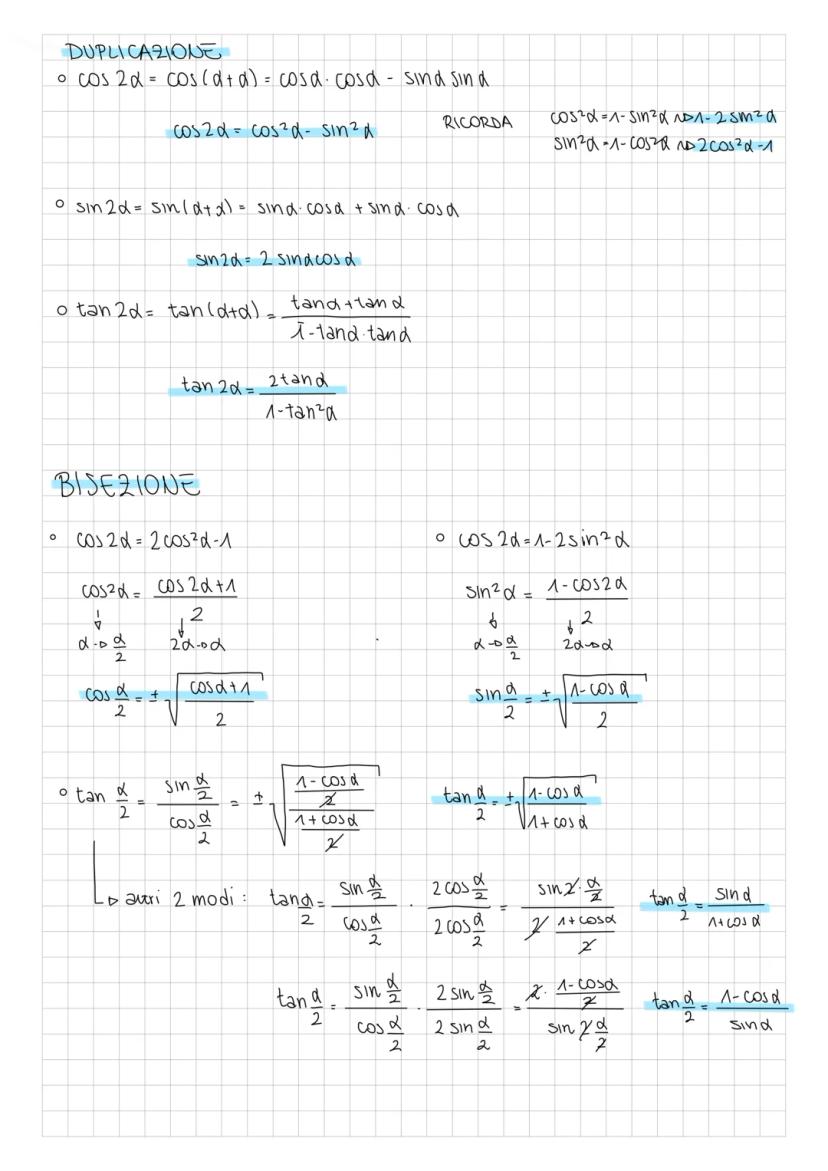 DUPLICAZIONE
° cos 2α = cos(α+α) = cosα · cosα - sinα sinα
cos2α = cos²α - sin²α RICORDA cos²α = 1 - sin²α ⇝ 1 - 2 sin²α
sin²α = 1 - cos²α ⇝ 2cos²α - 1
° sin 2α = sin(α+α) = sinα · cosα + sinα · cosα
sin2α = 2 sinα cosα
° tan 2α = tan(α+α) = (tanα + tanα)/(1 - tanα · tanα)
tan 2α = (2 tanα)/(1 - tan²α)
BISEZIONE
° cos 2α = 2cos²α - 1 ° cos 2α = 1 - 2 sin²α
cos²α = (cos 2α + 1)/2 sin²α = (1 - cos2α)/2
α → α/2 2α → α α → α/2 2α → α
cos α/2 = ± √((cosα + 1)/2) sin α/2 = ± √((1 - cosα)/2)
° tan α/2 = (sin α/2)/(cos α/2) = ± √(((1 - cosα)/2)/((1 + cosα)/2)) tan α/2 = ± √((1 - cosα)/(1 + cosα))
↳ altri 2 modi : tan α/2 = (sin α/2)/(cos α/2) · (2 cos α/2)/(2 cos α/2) = (sin 2 · α/2)/(2 (1 + cosα)/2) tan α/2 = sinα/(1 + cosα)
tan α/2 = (sin α/2)/(cos α/2) · (2 sin α/2)/(2 sin α/2) = (2 · (1 - cosα)/2)/(sin 2 α/2) tan α/2 = (1 - cosα)/sinα